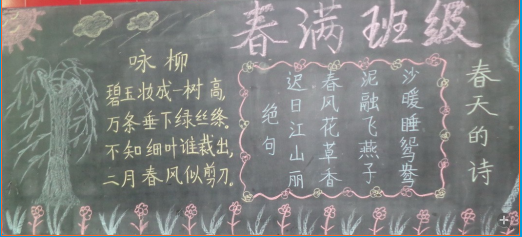 春满班级
咏柳
碧玉妆成一树高,
万条垂下绿丝绦.
不知细叶谁裁出,
二月春风似剪刀.
绝句
迟日江山丽
春风花草香
泥融飞燕子
沙暖睡鸳鸯
春天的诗